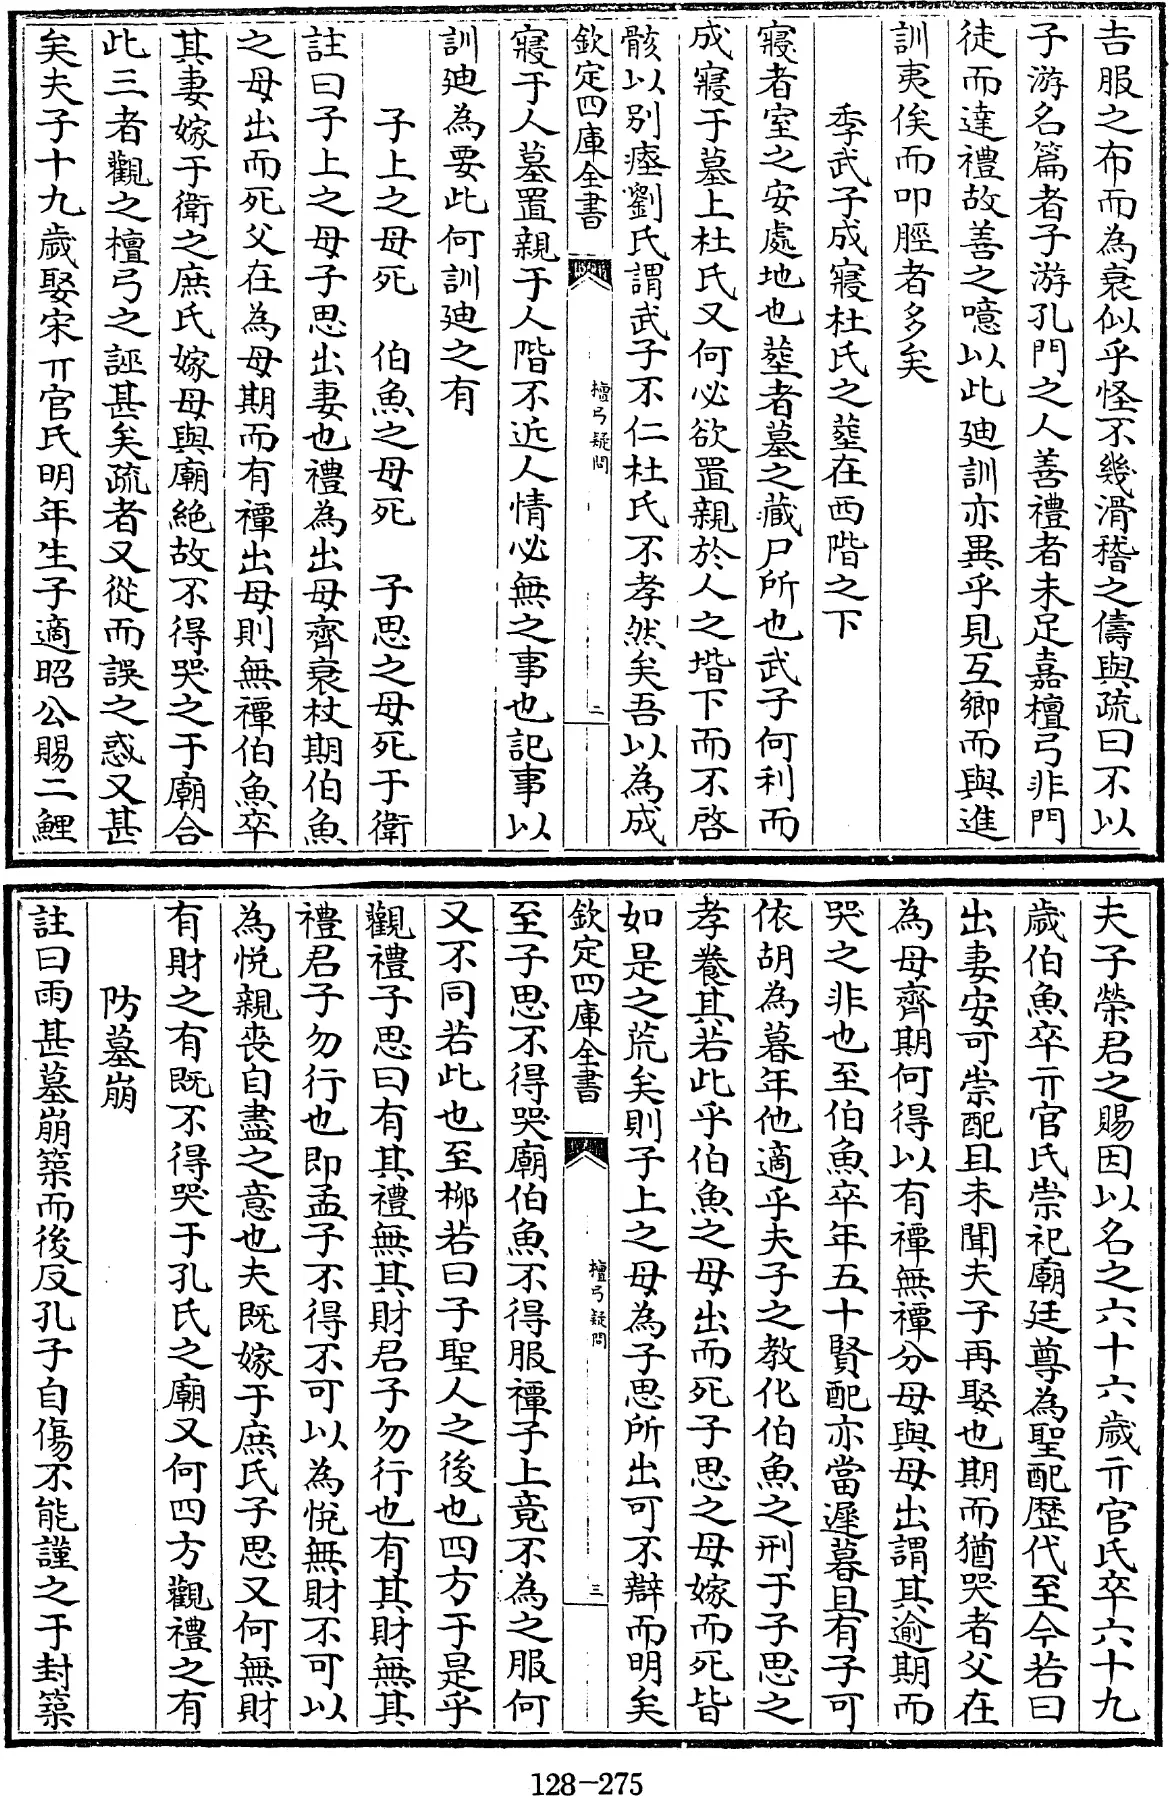 吉服之布而為衰似乎怪不幾滑稽之儔與疏曰不以
子游名篇者子游孔門之人善禮者未足嘉檀弓非門
徒而達禮故善之噫以此廸訓亦異乎見互鄉而與進
訓夷俟而叩脛者多矣
季武子成寢杜氏之塟在西階之下
寢者室之安處地也塟者墓之藏尸所也武子何利而
成寢于墓上杜氏又何必欲置親於人之堦下而不啓
骸以别瘞劉氏謂武子不仁杜氏不孝然矣吾以為成
欽定四庫全書
檀弓疑問
二
寢于人墓置親于人階不近人情必無之事也記事以
訓廸為要此何訓廸之有
子上之母死　伯魚之母死　子思之母死于衛
註曰子上之母子思出妻也禮為出母齊衰杖期伯魚
之母出而死父在為母期而有禫出母則無禫伯魚卒
其妻嫁于衛之庶氏嫁母與廟絶故不得哭之于廟合
此三者觀之檀弓之誣甚矣疏者又從而誤之惑又甚
矣夫子十九歲娶宋亓官氏明年生子適昭公賜二鯉
夫子榮君之賜因以名之六十六歲亓官氏卒六十九
歲伯魚卒亓官氏崇祀廟廷尊為聖配歷代至今若曰
出妻安可崇配且未聞夫子再娶也期而猶哭者父在
為母齊期何得以有禫無禫分母與母出謂其逾期而
哭之非也至伯魚卒年五十賢配亦當遲暮且有子可
依胡為暮年他適乎夫子之教化伯魚之刑于子思之
孝養其若此乎伯魚之母出而死子思之母嫁而死皆
如是之荒矣則子上之母為子思所出可不辯而明矣
欽定四庫全書
檀弓疑問
三
至子思不得哭廟伯魚不得服禫子上竟不為之服何
又不同若此也至柳若曰子聖人之後也四方于是乎
觀禮子思曰有其禮無其財君子勿行也有其財無其
禮君子勿行也即孟子不得不可以為悅無財不可以
為悅親喪自盡之意也夫既嫁于庶氏子思又何無財
有財之有既不得哭于孔氏之廟又何四方觀禮之有
防墓崩
註曰雨甚墓崩築而後反孔子自傷不能謹之于封築
128-275